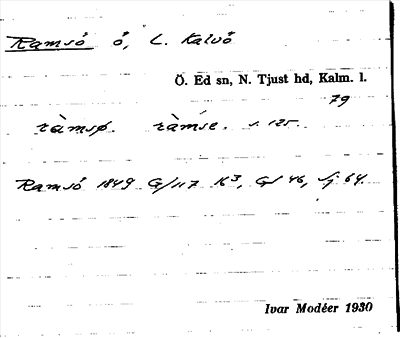 Ramsö ö, L. Kalvö
Ö. Ed sn, N. Tjust hd, Kalm. l.
79
ràmsø. ràmse. s. 125.
Ramsö 1849 G/117 K³, Gl 46, Sj 64.
Ivar Modéer 1930